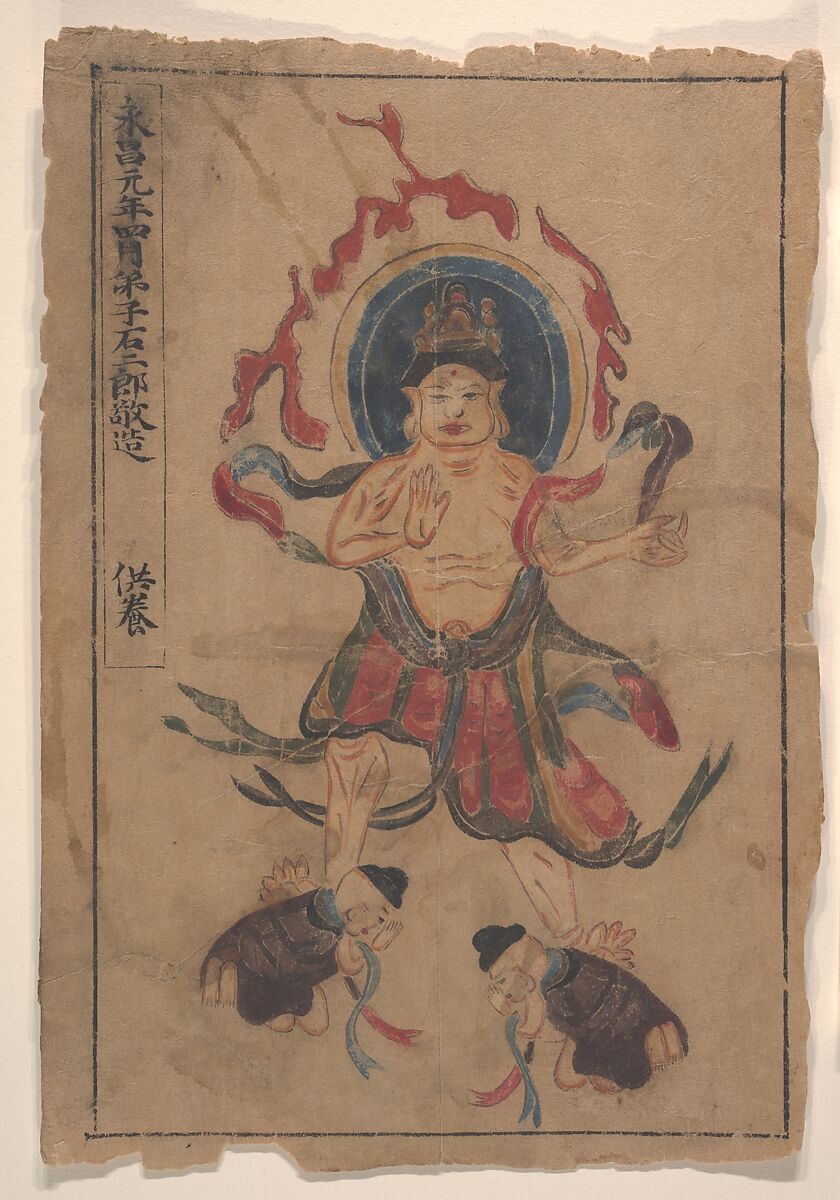 永昌元年四月弟子石二郎敬造
供養